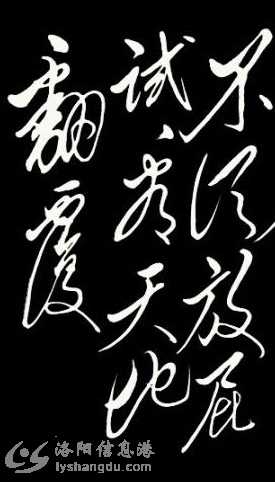 不须放屁
试看天地
翻覆
洛阳信息港
lyshangdu.com